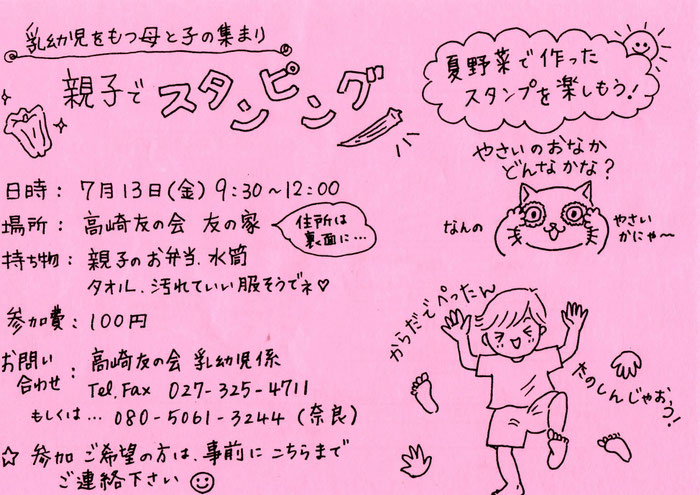 乳幼児をもつ母と子の集まり
親子でスタンピング
夏野菜で作った
スタンプを楽しもう!
やさいのおなか
どんなかな?
なんの
やさい
かにゃ〜
日時: 7月13日(金) 9:30〜12:00
場所: 高崎友の会 友の家
住所は
裏面に…
持ち物: 親子のお弁当、水筒
タオル、汚れていい服そうでネ♡
参加費: 100円
お問い
合わせ: 高崎友の会 乳幼児係
Tel.Fax 027-325-4711
もしくは… 080-5061-3244 (奈良)
☆ 参加ご希望の方は、事前にこちらまで
ご連絡下さい
からだでぺったん
たのしんじゃおう!